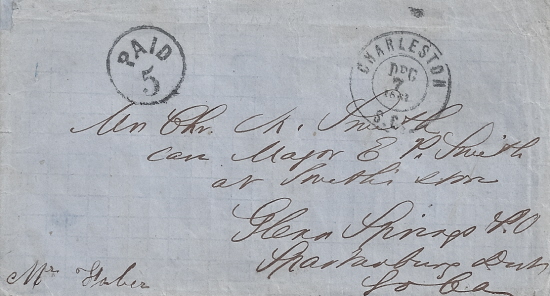 PAID
5
CHARLESTON
DEC
7
1861
S.C.
Mr Chr. M. Smith
care Major E P. Smith
at Smith's store
Glenn Springs P.O
Spartanburg Dist
So Ca
Mr Faber